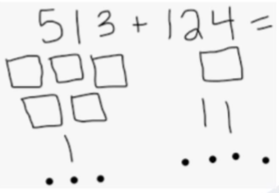 513 + 124 =